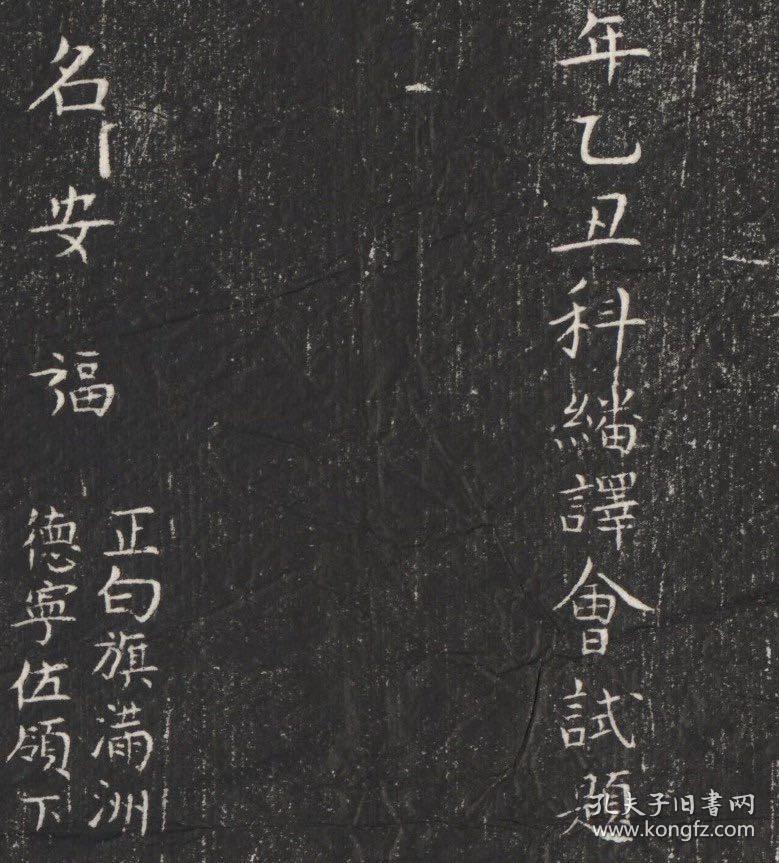 年乙丑科繙譯會試題
名安福
正白旗滿洲
德寧佐領下
孔夫子旧書网
www.kongfz.com